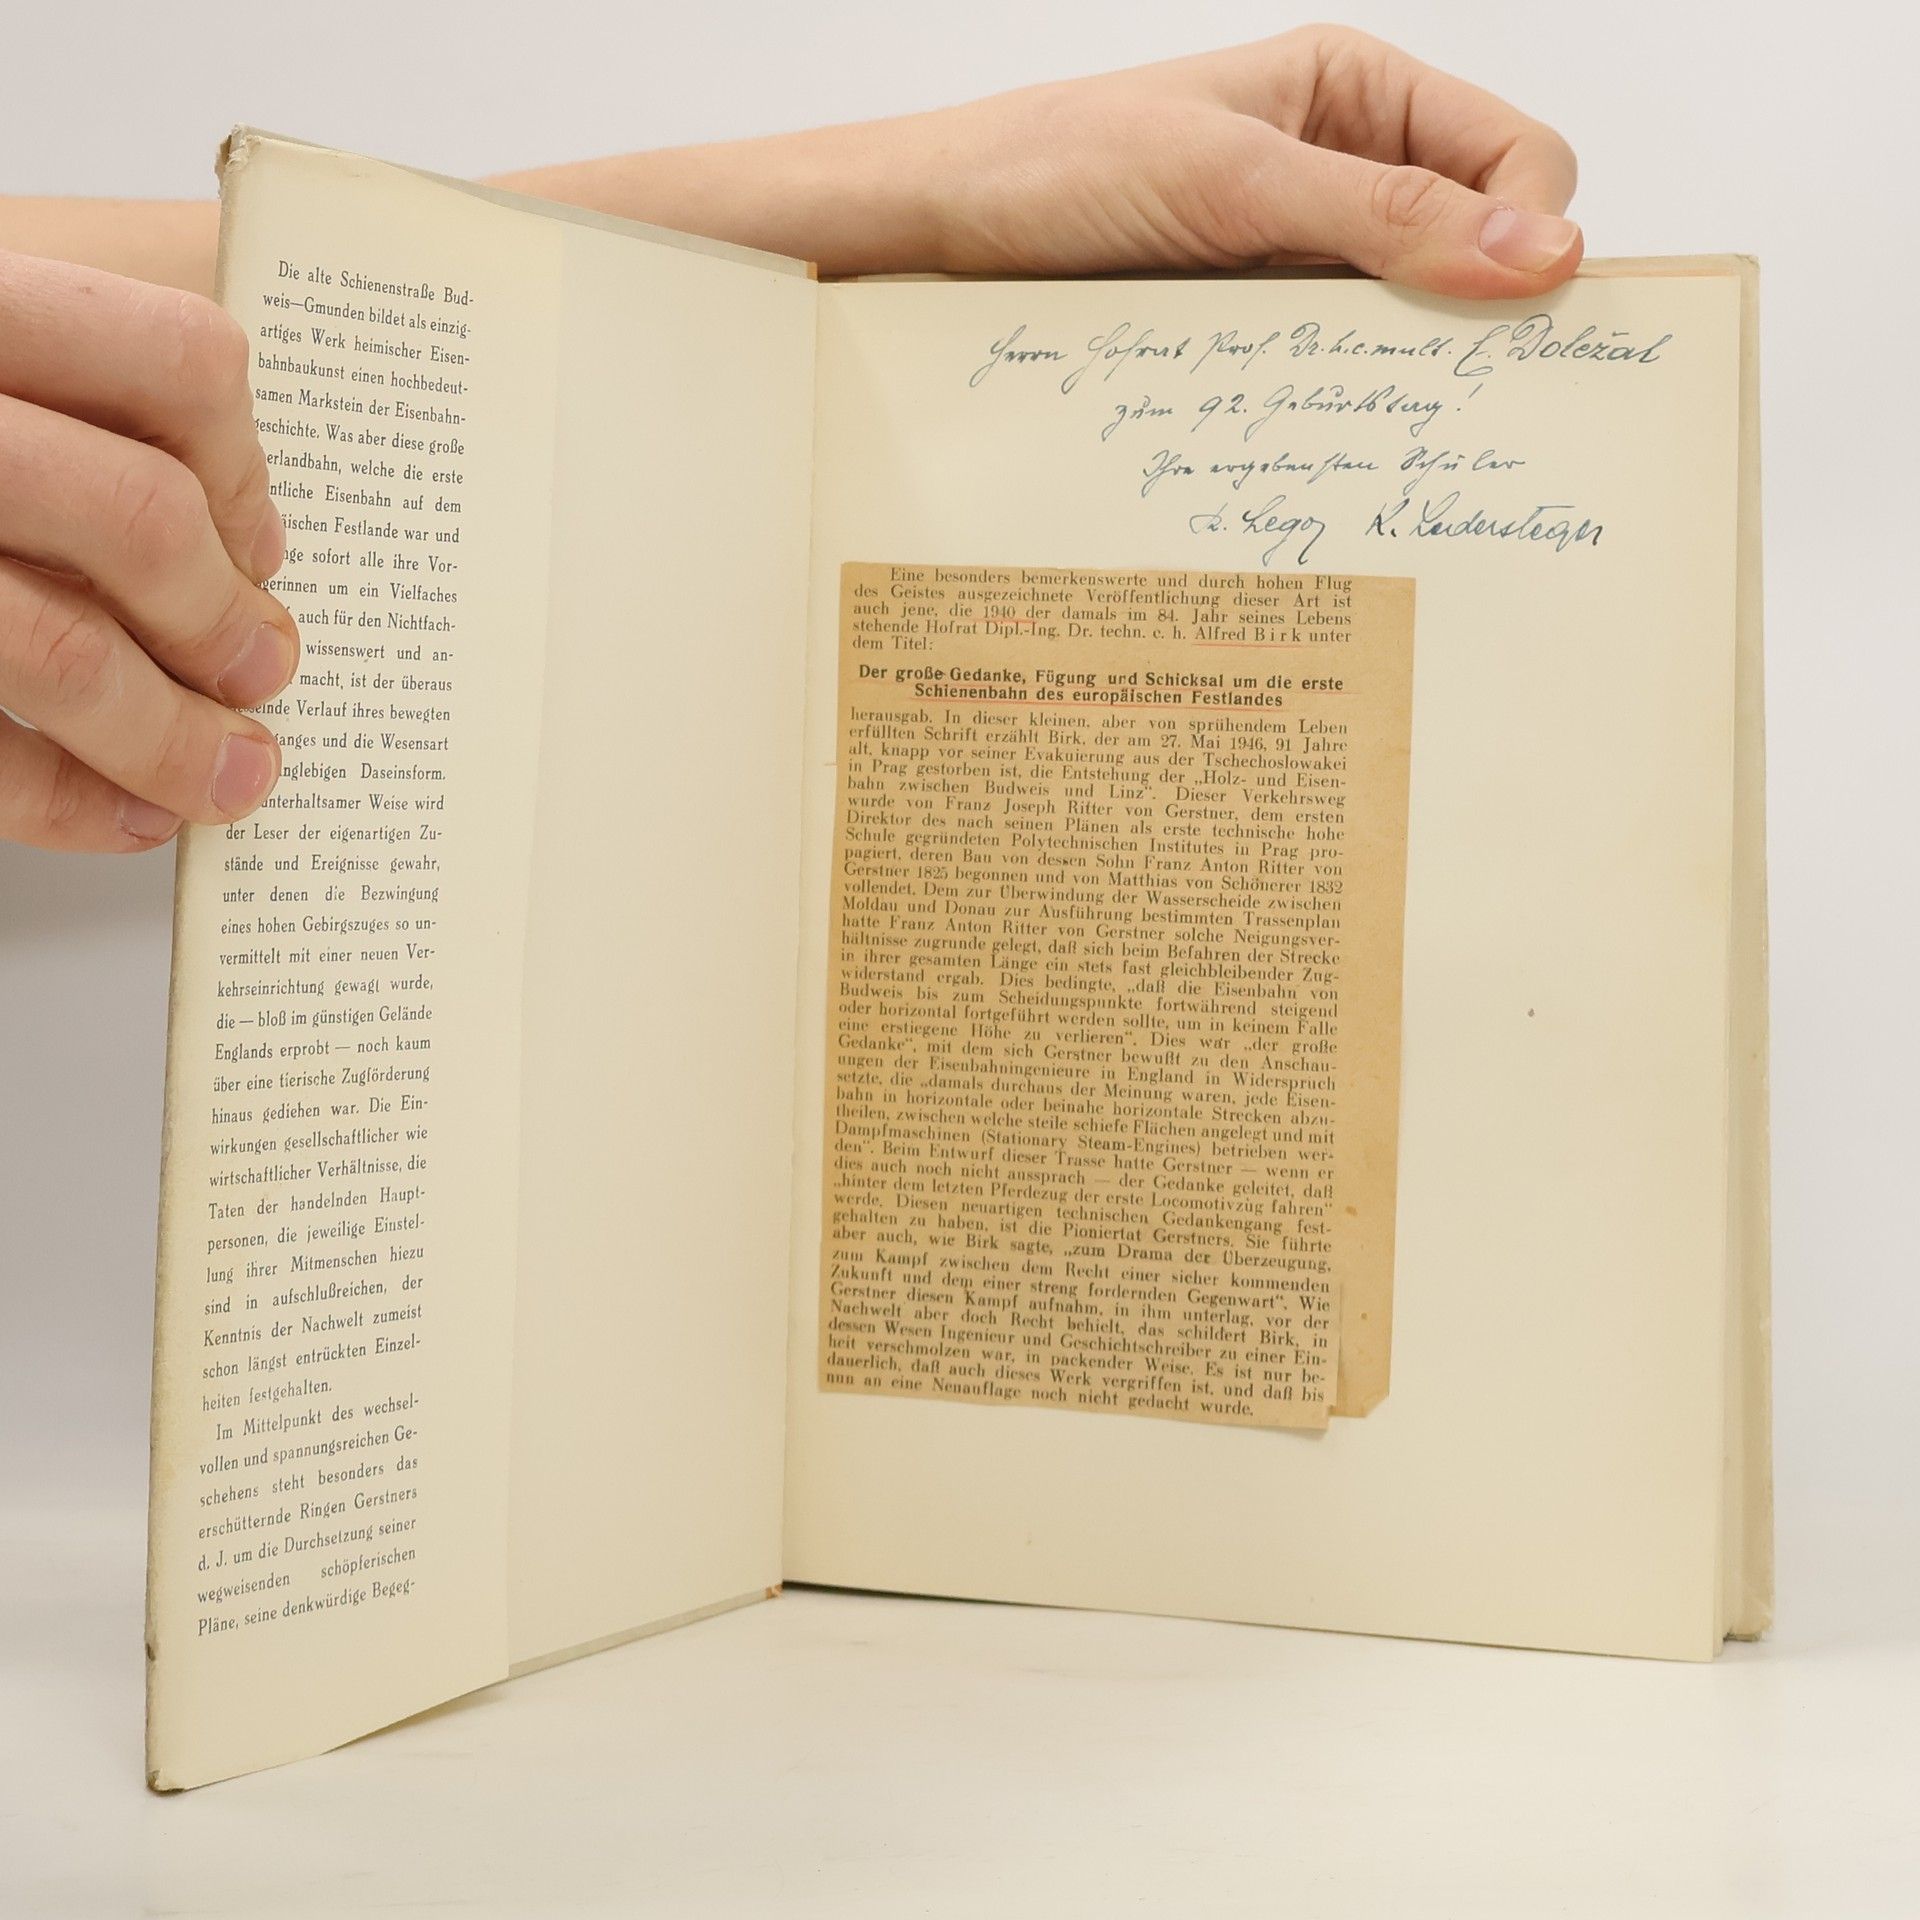 Die alte Schienenstraße Bud-
weis—Gmunden bildet als einzig-
artiges Werk heimischer Eisen-
bahnbaukunst einen hochbedeut-
samen Markstein der Eisenbahn-
geschichte. Was aber diese große
erlandbahn, welche die erste
ntliche Eisenbahn auf dem
äischen Festlande war und
nge sofort alle ihre Vor-
gerinnen um ein Vielfaches
auch für den Nichtfach-
wissenswert und an-
macht, ist der überaus
elnde Verlauf ihres bewegten
ganges und die Wesensart
nglebigen Daseinsform.
unterhaltsamer Weise wird
der Leser der eigenartigen Zu-
stände und Ereignisse gewahr,
unter denen die Bezwingung
eines hohen Gebirgszuges so un-
vermittelt mit einer neuen Ver-
kehrseinrichtung gewagt wurde,
die — bloß im günstigen Gelände
Englands erprobt — noch kaum
über eine tierische Zugförderung
hinaus gediehen war. Die Ein-
wirkungen gesellschaftlicher wie
wirtschaftlicher Verhältnisse, die
Taten der handelnden Haupt-
personen, die jeweilige Einstel-
lung ihrer Mitmenschen hiezu
sind in aufschlußreichen, der
Kenntnis der Nachwelt zumeist
schon längst entrückten Einzel-
heiten festgehalten.
Im Mittelpunkt des wechsel-
vollen und spannungsreichen Ge-
schehens steht besonders das
erschütternde Ringen Gerstners
d. J. um die Durchsetzung seiner
wegweisenden schöpferischen
Pläne, seine denkwürdige Begeg-
Herrn Hofrat Prof. Dr. h. c. mult. E. Doležal
zum 92. Geburtstag!
Ihre ergebensten Schüler
K. Lego K. Ledersteger
Eine besonders bemerkenswerte und durch hohen Flug
des Geistes ausgezeichnete Veröffentlichung dieser Art ist
auch jene, die 1940 der damals im 84. Jahr seines Lebens
stehende Hofrat Dipl.-Ing. Dr. techn. e. h. Alfred Birk unter
dem Titel:
Der große Gedanke, Fügung und Schicksal um die erste
Schienenbahn des europäischen Festlandes
herausgab. In dieser kleinen, aber von sprühendem Leben
erfüllten Schrift erzählt Birk, der am 27. Mai 1946, 91 Jahre
alt, knapp vor seiner Evakuierung aus der Tschechoslowakei
in Prag gestorben ist, die Entstehung der „Holz- und Eisen-
bahn zwischen Budweis und Linz“. Dieser Verkehrsweg
wurde von Franz Joseph Ritter von Gerstner, dem ersten
Direktor des nach seinen Plänen als erste technische hohe
Schule gegründeten Polytechnischen Institutes in Prag pro-
pagiert, deren Bau von dessen Sohn Franz Anton Ritter von
Gerstner 1825 begonnen und von Matthias von Schönerer 1832
vollendet. Dem zur Überwindung der Wasserscheide zwischen
Moldau und Donau zur Ausführung bestimmten Trassenplan
hatte Franz Anton Ritter von Gerstner solche Neigungsver-
hältnisse zugrunde gelegt, daß sich beim Befahren der Strecke
in ihrer gesamten Länge ein stets fast gleichbleibender Zug-
widerstand ergab. Dies bedingte, „daß die Eisenbahn von
Budweis bis zum Scheidungspunkte fortwährend steigend
oder horizontal fortgeführt werden sollte, um in keinem Falle
eine erstiegene Höhe zu verlieren“. Dies war „der große
Gedanke“, mit dem sich Gerstner bewußt zu den Anschau-
ungen der Eisenbahningenieure in England in Widerspruch
setzte, die „damals durchaus der Meinung waren, jede Eisen-
bahn in horizontale oder beinahe horizontale Strecken abzu-
theilen, zwischen welche steile schiefe Flächen angelegt und mit
Dampfmaschinen (Stationary Steam-Engines) betrieben wer-
den“. Beim Entwurf dieser Trasse hatte Gerstner — wenn er
dies auch noch nicht aussprach — der Gedanke geleitet, daß
„hinter dem letzten Pferdezug der erste Locomotivzug fahren“
werde. Diesen neuartigen technischen Gedankengang fest-
gehalten zu haben, ist die Pioniertat Gerstners. Sie führte
aber auch, wie Birk sagte, „zum Drama der Überzeugung,
zum Kampf zwischen dem Recht einer sicher kommenden
Zukunft und dem einer streng fordernden Gegenwart“. Wie
Gerstner diesen Kampf aufnahm, in ihm unterlag, vor der
Nachwelt aber doch Recht behielt, das schildert Birk, in
dessen Wesen Ingenieur und Geschichtschreiber zu einer Ein-
heit verschmolzen war, in packender Weise. Es ist nur be-
dauerlich, daß auch dieses Werk vergriffen ist, und daß bis
nun an eine Neuauflage noch nicht gedacht wurde.